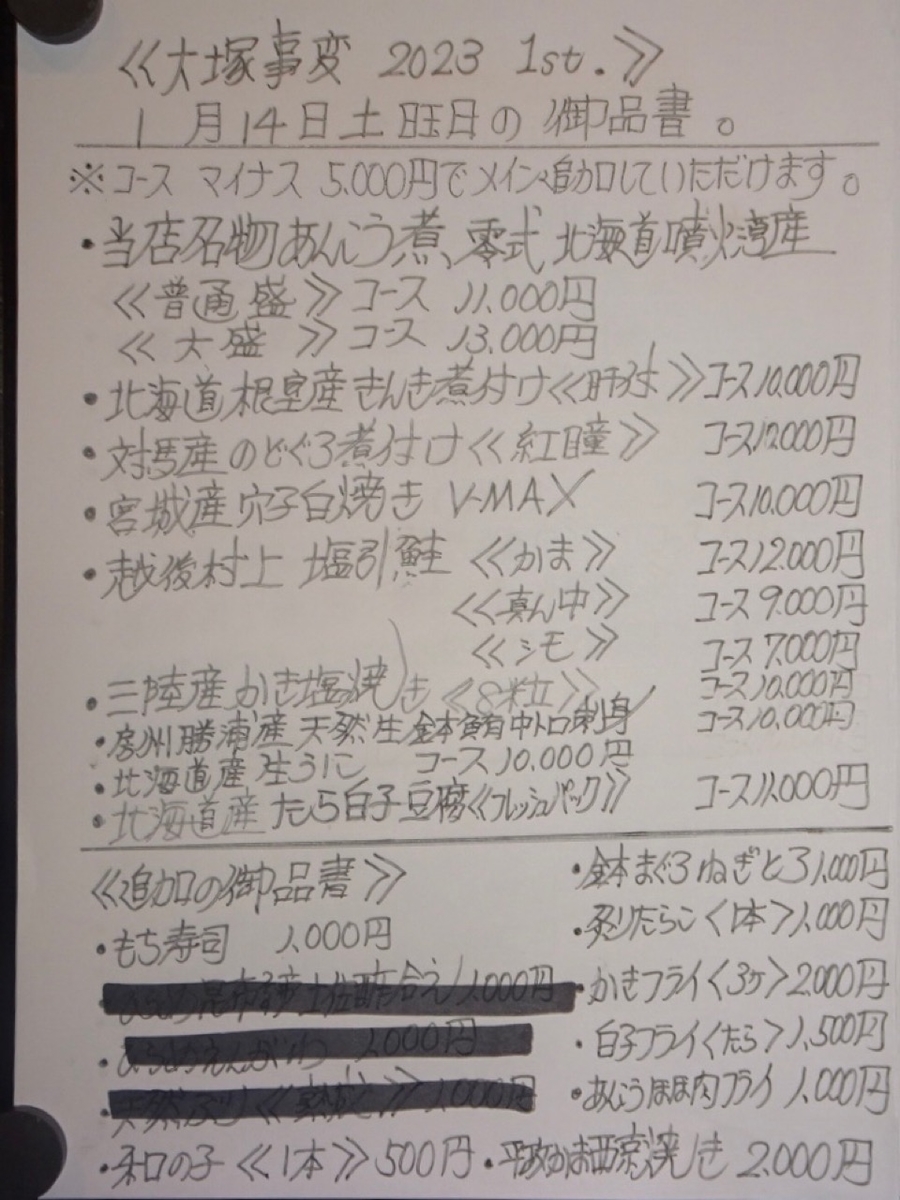 ≪大塚事変 2023 1st.≫
1月14日土曜日の御品書。
※コース マイナス 5.000円でメイン追加していただけます。
・当店名物あんこう煮、零式 北海道噴火湾産
≪普通盛≫コース 11.000円
≪大盛≫コース 13.000円
・北海道根室産きんき煮付け≪肝付≫コース10.000円
・対馬産のどぐろ煮付け≪紅瞳≫ コース12000円
・宮城産穴子白焼き V-MAX コース10.000円
・越後村上 塩引鮭 ≪かま≫ コース12.000円
≪真ん中≫ コース 9.000円
≪シモ≫ コース 7.000円
・三陸産かき塩焼き≪8粒≫ コース10.000円
・房州勝浦産 天然生鉢鮪中トロ刺身 コース10,000円
・北海道産 生うに コース10.000円
・北海道産 たら白子豆腐≪フレッシュパック≫ コース11,000円
≪追加の御品書≫
・もち寿司 1,000円
1.000円
・えんがわ 1,000円
・天然ぶり 1.000円
・和の子≪1本≫500円
・鉢まぐろねぎとろ1,000円
・炙りたらこ<1本>1,000円
・かきフライ<3ヶ>2.000円
・白子フライ<たら>1,500円
・あんこうほほ肉フライ 1,000円
・西京焼き 2.000円